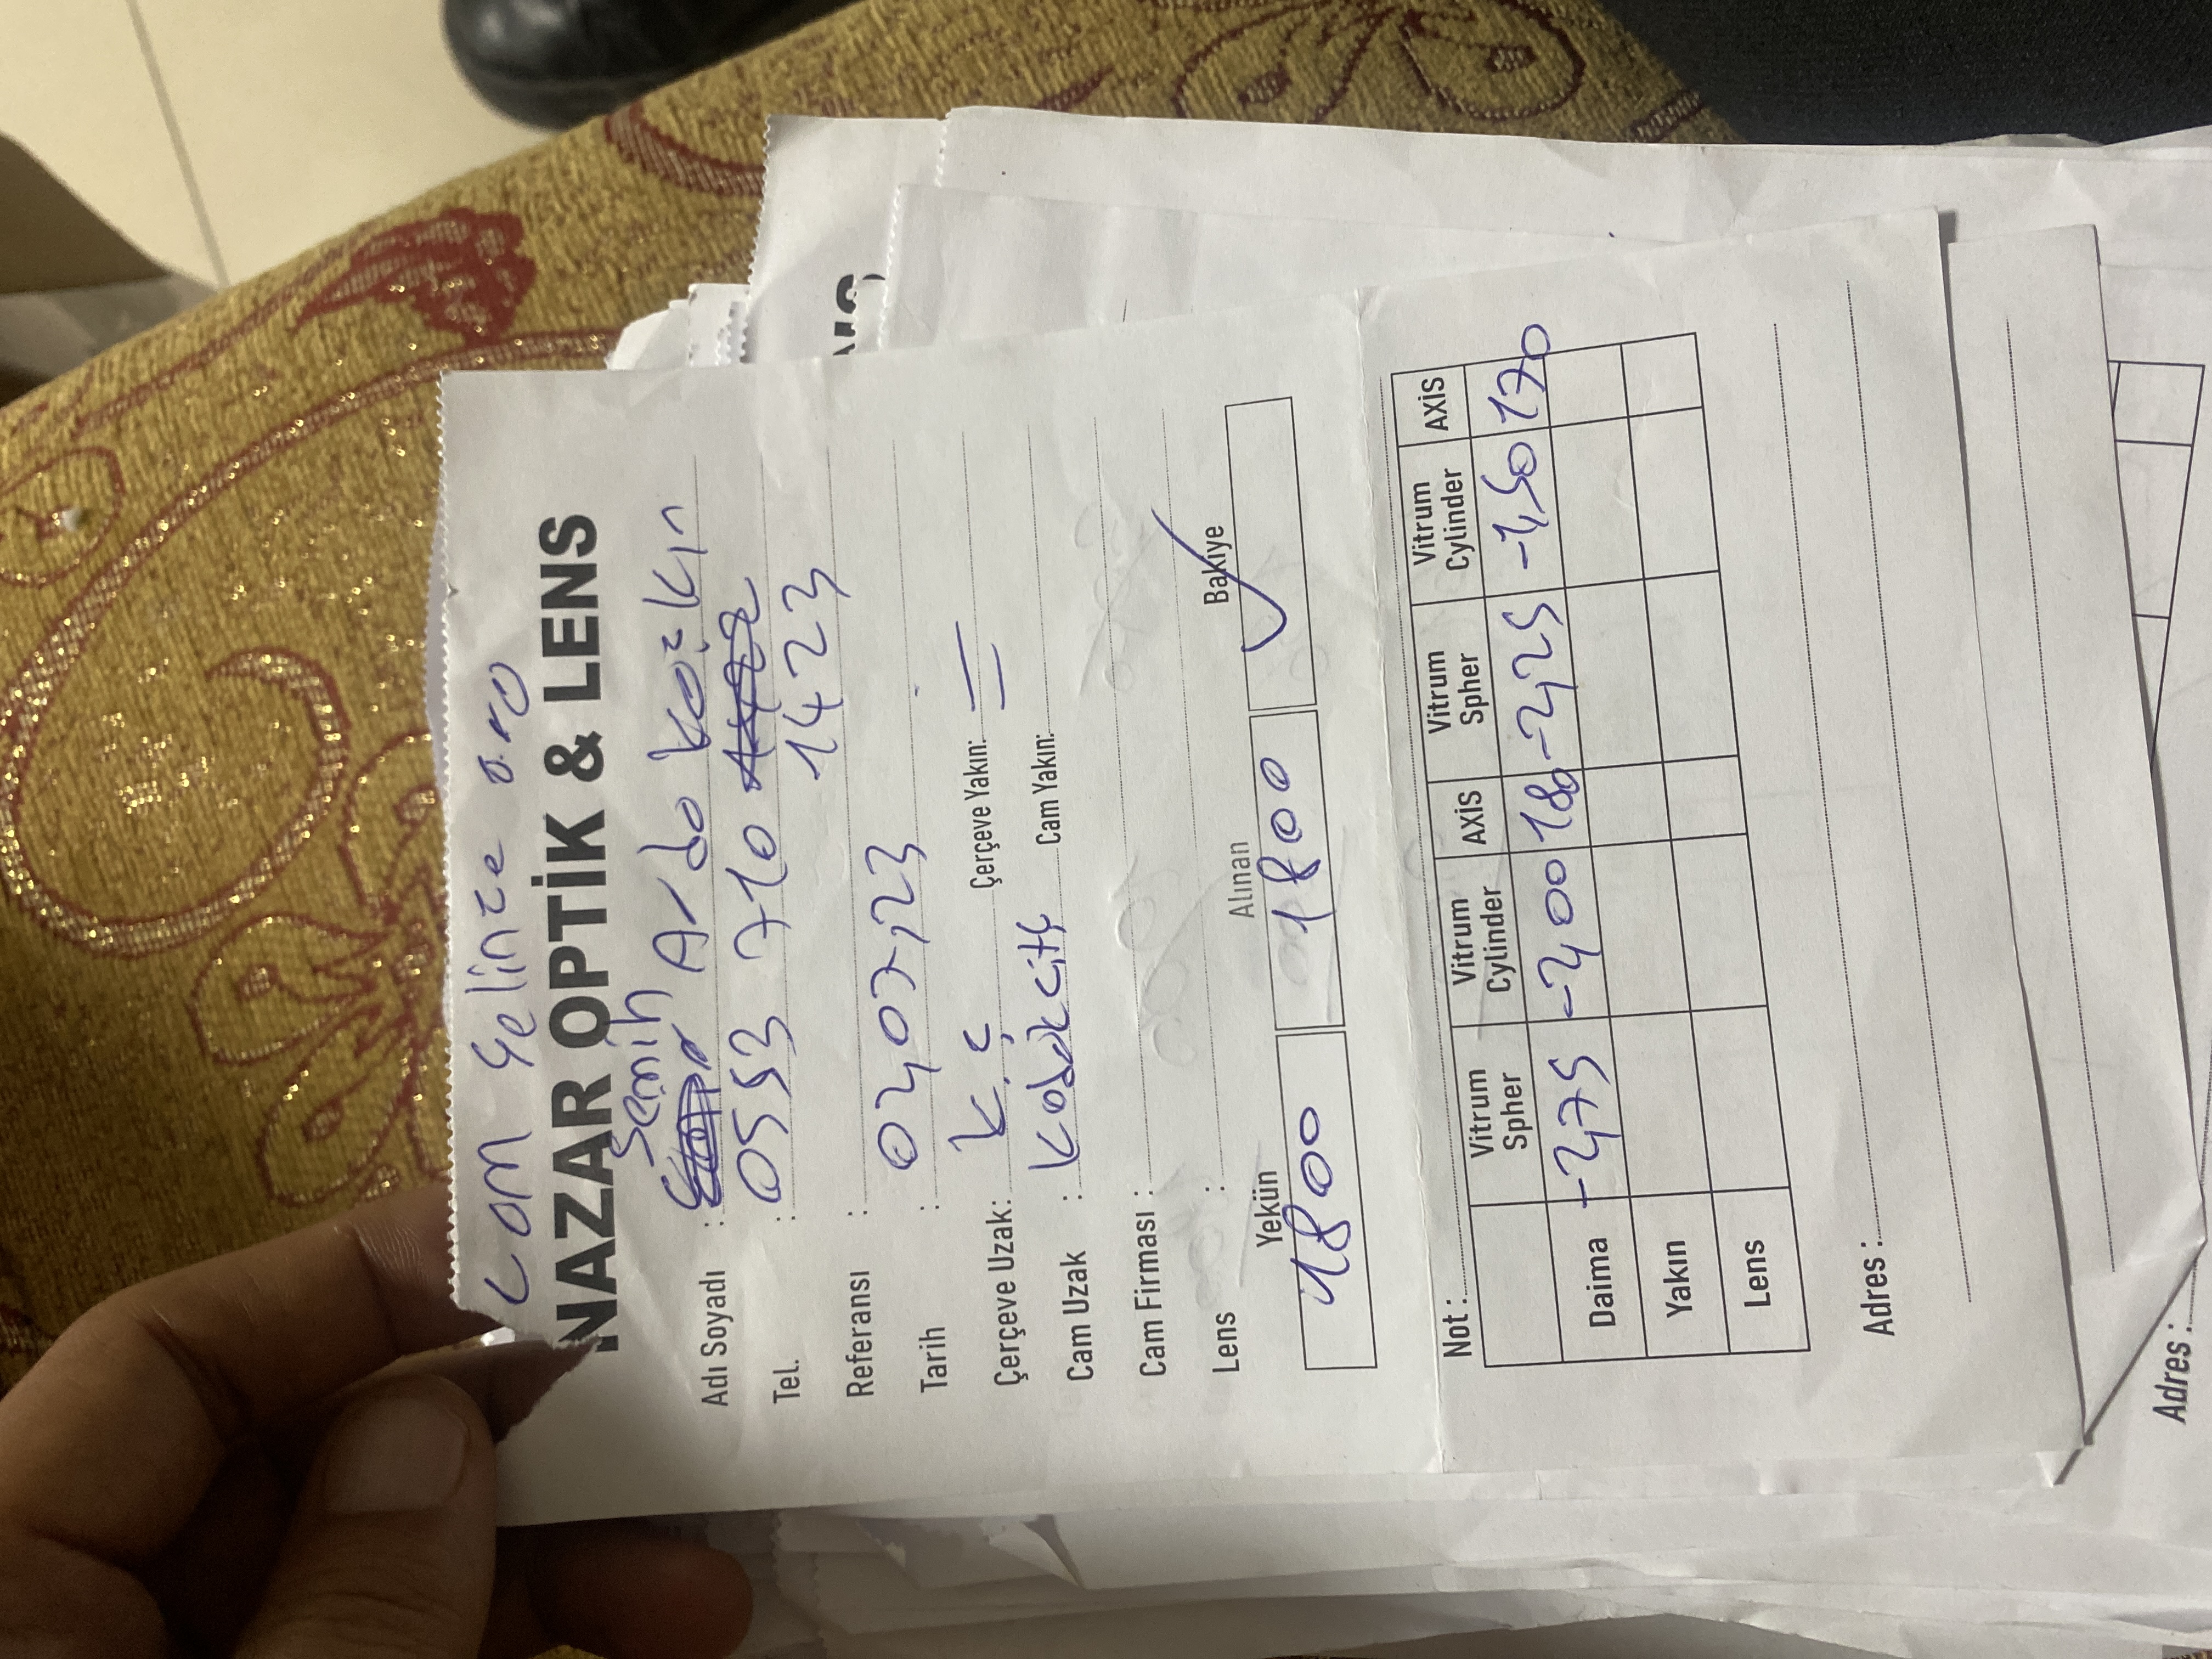 cam gelince ara
NAZAR OPTİK & LENS
Semih
Adı Soyadı : Arda Kozkın
Tel. : 0553 710 1422
1423
Referansı :
Tarih : 02,07,23
Çerçeve Uzak: K.Ç Çerçeve Yakın:
Cam Uzak : Kodak Cam Yakın:
Cam Firması :
Lens :
Yekün Alınan Bakiye
1800 1800 ✓
Not :
Vitrum Spher Vitrum Cylinder AXİS Vitrum Spher Vitrum Cylinder AXİS
Daima -2,75 -2,00 180 -2,25 -1,50 170
Yakın
Lens
Adres :
Adres :